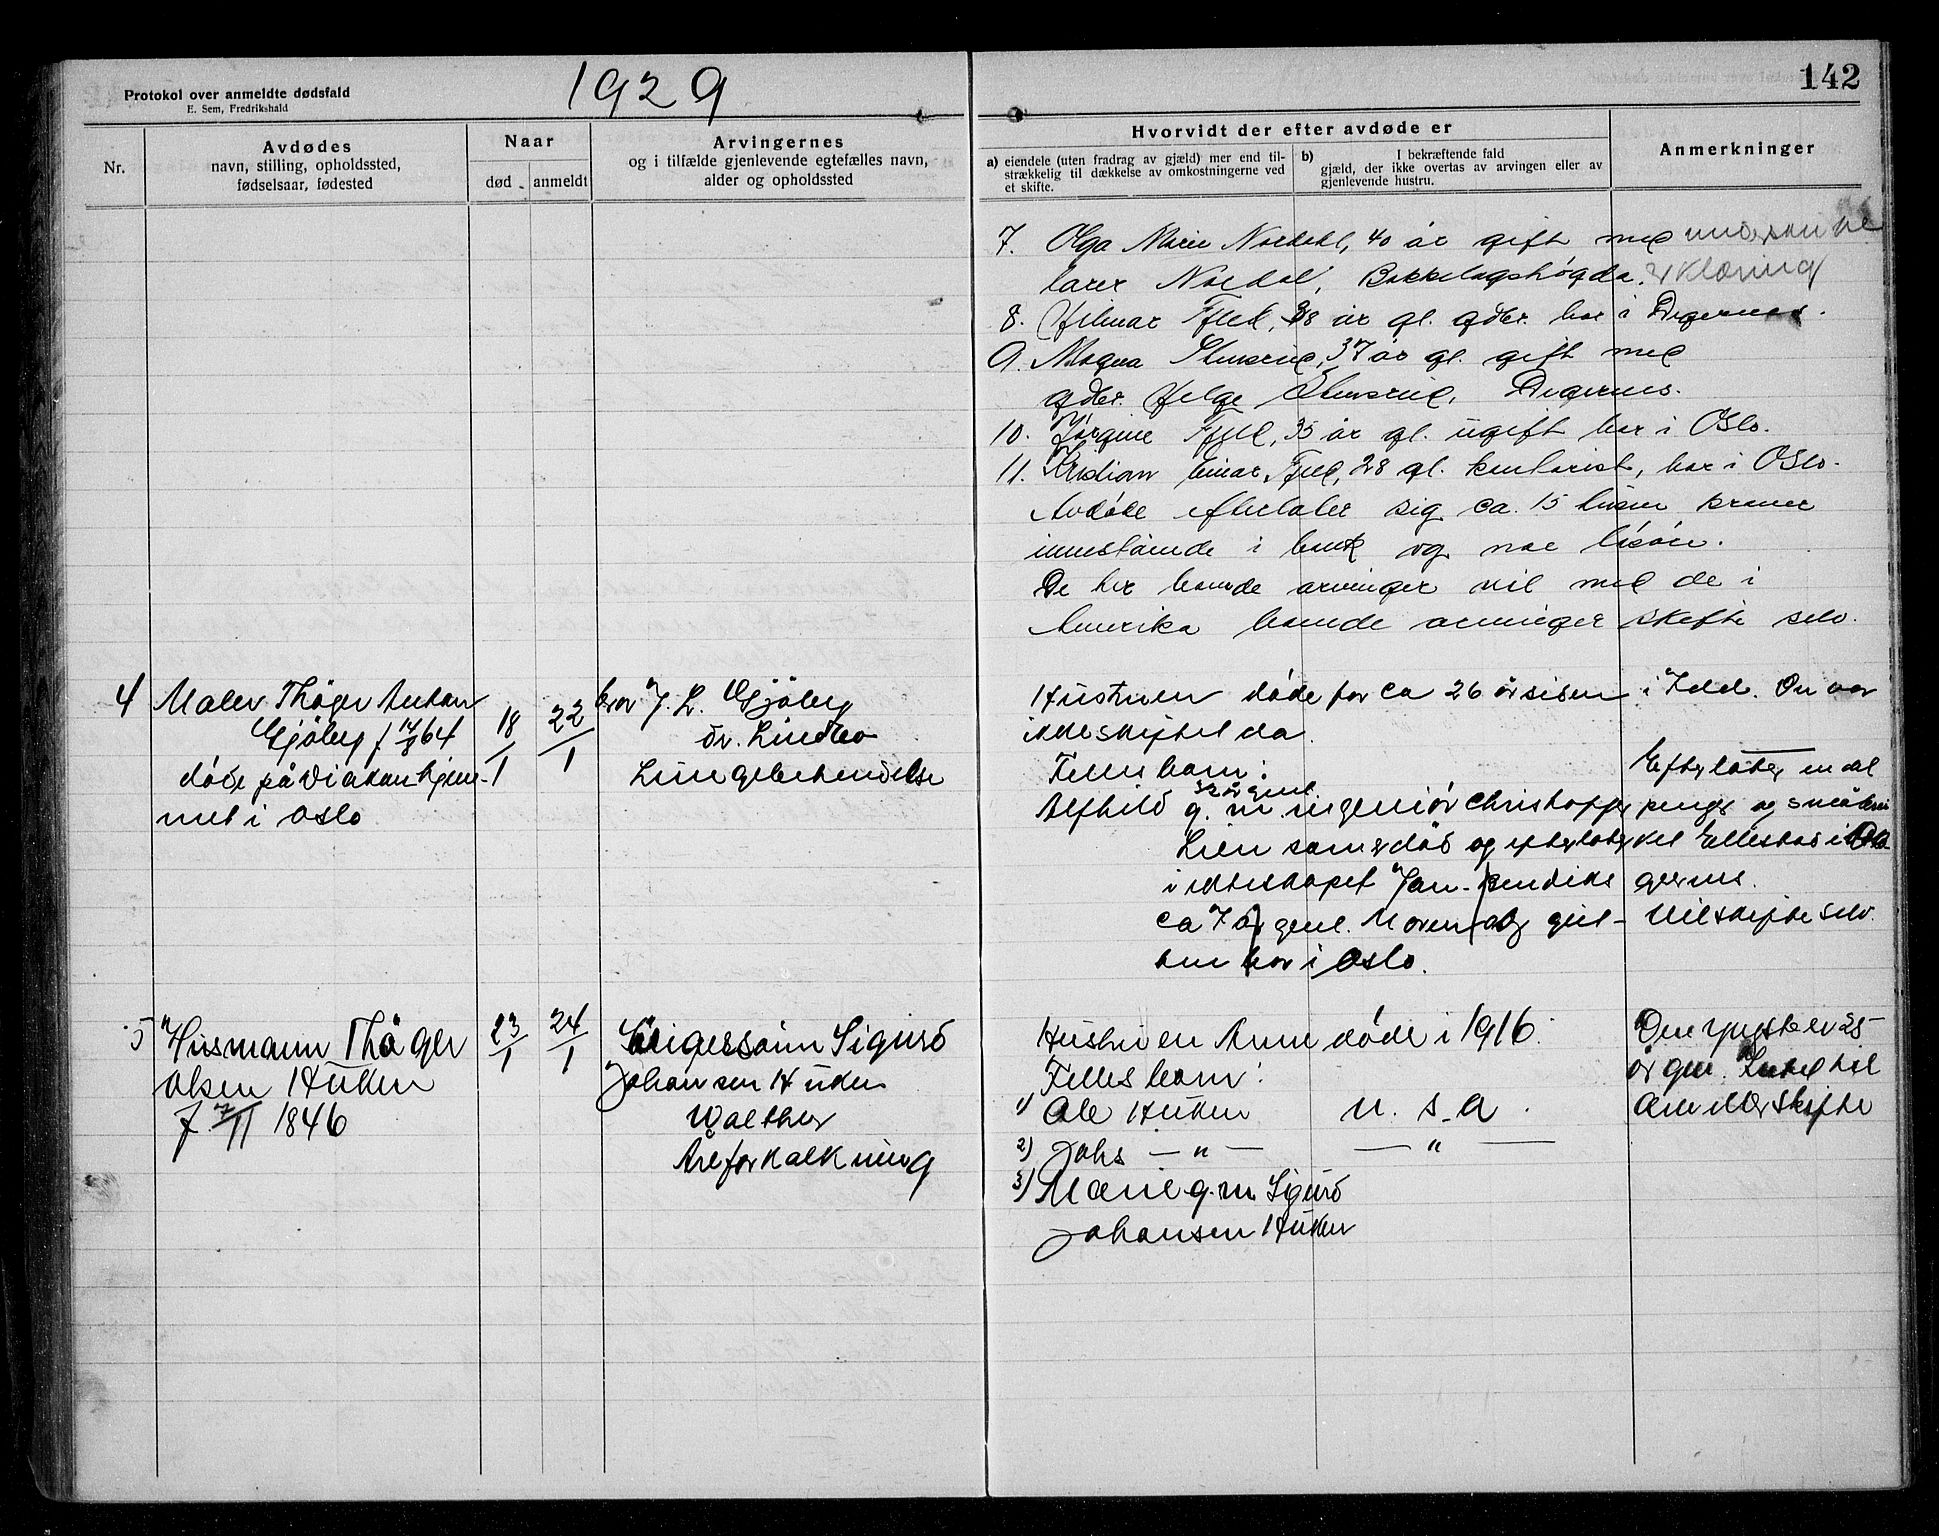 Protokol over anmeldte dødsfald
E. Sem, Fredrikshald
1929
142
Nr.
Avdødes
navn, stilling, opholdssted,
fødselsaar, fødested
Naar
død
anmeldt
Arvingernes
og i tilfælde gjenlevende egtefælles navn,
alder og opholdssted
Hvorvidt der efter avdøde er
a) eiendele (uten fradrag av gjæld) mer end til-
strækkelig til dækkelse av omkostningerne ved
et skifte.
b) I bekræftende fald
gjæld, der ikke overtas av arvingen eller av
gjenlevende hustru.
Anmerkninger
7. Olga Marie Nordahl, 40 år gift med
lærer Nordal, Bekkelagshøgda. erklæring
8. Hilmar Fjeld, 38 år gl. gdbr. bor i Degernes.
9. Magna Stensrud, 37 år gl. gift med
gdbr. Helge Stensrud, Degernes.
10. Jørgine Fjeld, 35 år gl. ugift bor i Oslo.
11. Kristian Einar Fjeld, 28 gl. kontorist, bor i Oslo.
Avdøde efterlater sig ca. 15 tusen kroner
innestående i bank og noe løsøre.
De her boende arvinger vil med de i
Amerika boende arvinger skifte selv.
4 Maler Thøger Anton
Gjøberg f 14/8 64
døde på Diakonhjem-
met i Oslo
18/1
22/1
bror J. L. Gjøberg
dr. Lindbo
Lungebetendelse
Hustruen døde for ca 26 år siden i Idd. Der var
ikke skiftet da.
Felles barn:
32 år gml.
Alfhild g. m. ingeniør Christopher
Lien som er død og efterlater
i ekteskapet Jan-Bendiks
ca 7 år gml. Moren og gut-
ten bor i Oslo.
Efterlater en del
penger og småteri
ved Ellestad i De-
gernes.
Vil skifte selv.
5 Husmann Thøger
Olsen Huken
f 7/11 1846
23/1
24/1
Svigersønn Sigurd
Johansen Huken
Walther
Åreforkalkning
Hustruen Anne døde i 1916.
Felles barn:
1) Ole Huken U. S. A.
2) Johs — " — — " —
3) Marie g. m. Sigurd
Johansen Huken
Den yngste er 25
år gml.